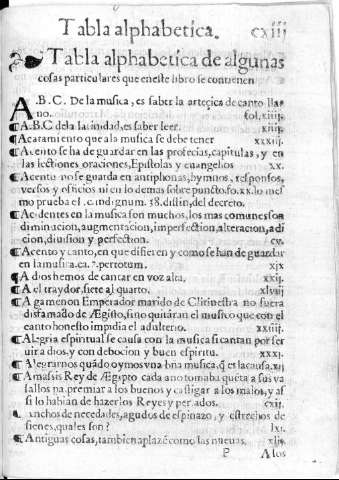 Tabla alphabetica. cxiij
Tabla alphabetica de algunas
cosas particulares que eneste libro se contienen
A .B.C. De la musica, es saber la arte çica de canto lla
no. fol.xiiij.
¶ A.B.C. de la latinidad, es saber leer. xiiij.
¶ Acatamiento que a lo musica se debe tener xxxiij.
¶ Acento se ha de guardar en las profecias, capitulas, y en
las lectiones, oraciones, Epistolas y euangelios xx.
¶ Acento no se guarda en antiphonas, hymnos, responsos,
versos y officios ni en lo demas sobre puncto. fo.xx. lo mes
mo prueba el .c. indignum. 38. distin, del decreto.
¶ Acidentes en la musica son muchos, los mas comunes son
diminucion, augmentacion, imperfection, alteracion, adi
cion, diuision y perfection. cv.
¶ Acento y canto, en que difieren y como se han de guardar
en la musica. ca. . per totum. xjx
¶ A dios hemos de cantar en voz alta, xxij.
¶ A el traydor, siete al quarto. xlviij
¶ Agamenon Emperador marido de Clitinestra no fuera
disfamado de Ægisto, sino quitáran el musico que con el
canto honesto impidia el adulterio. xxiiij.
¶ Alegria espiritual se causa con la musica si cantan por ser
uir a dios, y con debocion y buen espiritu. xxxj.
¶ Alegrarnos quãdo oymos vna bna musica, q̃ es la causa. xij
¶ Amassis Rey de Ægipto cada ano tomaba quẽta a sus va
sallos pa premiar a los buenos y castigar a los malos, y asˢ
si lo habiãn de hazer los Reyes y perlados. cxij.
¶ Anchos de necedades, agudos de espinazo, y estrechos de
sienes, quales son? lxj.
¶ Antiguas cosas, tambien aplazẽ como las nueuas. xlij.
P A los